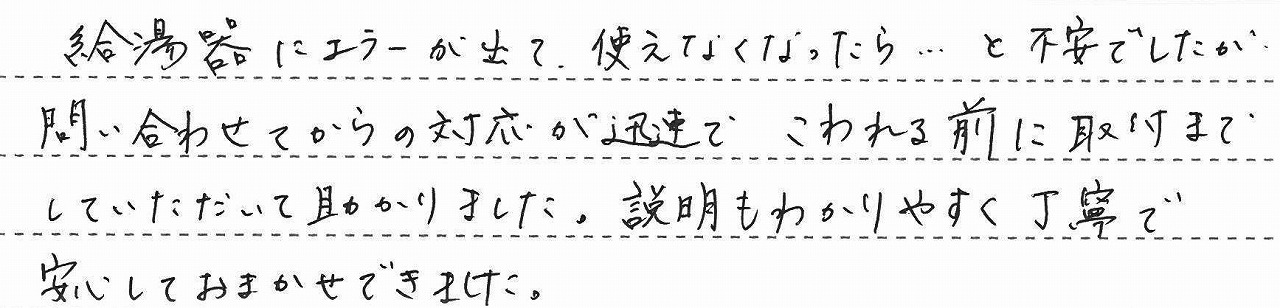 給湯器にエラーが出て、使えなくなったら…と不安でしたが
問い合わせてからの対応が迅速で こわれる前に取付まで
していただいて助かりました。説明もわかりやすく丁寧で
安心しておまかせできました。